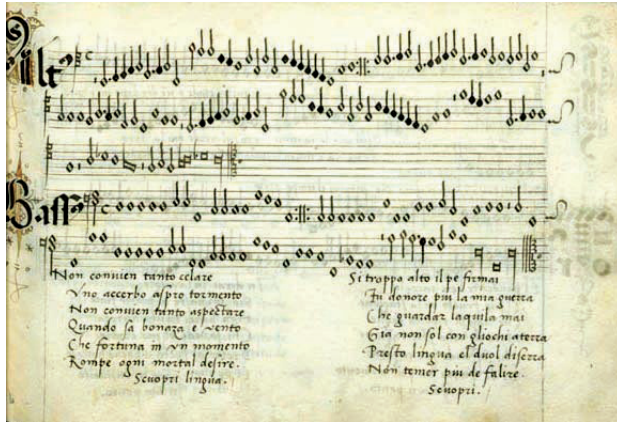 Alt
Bass
Non convien tanto celare
Vno accerbo aspro tormento
Non convien tanto aspectare
Quando sa bonaza e vento
Che fortuna in vn momento
Rompe ogni mortal desire.
Scuopri lingua.
Si troppo alto il pe firmai
Fu donore piu la mia guerra
Che guardar laquila mai
Gia non sol con gliochi aterra
Presto lingua el duol diserra
Non temer piu de falire.
Scuopri.